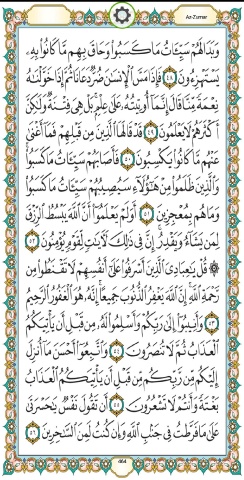 Az-Zumar
وَبَدَا لَهُمْ سَيِّـَٔاتُ مَا كَسَبُوا۟ وَحَاقَ بِهِم مَّا كَانُوا۟ بِهِۦ
يَسْتَهْزِءُونَ ٤٨ فَإِذَا مَسَّ ٱلْإِنسَـٰنَ ضُرٌّ دَعَانَا ثُمَّ إِذَا خَوَّلْنَـٰهُ
نِعْمَةً مِّنَّا قَالَ إِنَّمَآ أُوتِيتُهُۥ عَلَىٰ عِلْمٍۭ بَلْ هِىَ فِتْنَةٌ وَلَـٰكِنَّ
أَكْثَرَهُمْ لَا يَعْلَمُونَ ٤٩ قَدْ قَالَهَا ٱلَّذِينَ مِن قَبْلِهِمْ فَمَآ أَغْنَىٰ
عَنْهُم مَّا كَانُوا۟ يَكْسِبُونَ ٥٠ فَأَصَابَهُمْ سَيِّـَٔاتُ مَا كَسَبُوا۟
وَٱلَّذِينَ ظَلَمُوا۟ مِنْ هَـٰٓؤُلَآءِ سَيُصِيبُهُمْ سَيِّـَٔاتُ مَا كَسَبُوا۟
وَمَا هُم بِمُعْجِزِينَ ٥١ أَوَلَمْ يَعْلَمُوٓا۟ أَنَّ ٱللَّهَ يَبْسُطُ ٱلرِّزْقَ
لِمَن يَشَآءُ وَيَقْدِرُ ۚ إِنَّ فِى ذَٰلِكَ لَـَٔايَـٰتٍ لِّقَوْمٍ يُؤْمِنُونَ ٥٢
۞ قُلْ يَـٰعِبَادِىَ ٱلَّذِينَ أَسْرَفُوا۟ عَلَىٰٓ أَنفُسِهِمْ لَا تَقْنَطُوا۟ مِن
رَّحْمَةِ ٱللَّهِ ۚ إِنَّ ٱللَّهَ يَغْفِرُ ٱلذُّنُوبَ جَمِيعًا ۚ إِنَّهُۥ هُوَ ٱلْغَفُورُ ٱلرَّحِيمُ
٥٣ وَأَنِيبُوٓا۟ إِلَىٰ رَبِّكُمْ وَأَسْلِمُوا۟ لَهُۥ مِن قَبْلِ أَن يَأْتِيَكُمُ
ٱلْعَذَابُ ثُمَّ لَا تُنصَرُونَ ٥٤ وَٱتَّبِعُوٓا۟ أَحْسَنَ مَآ أُنزِلَ
إِلَيْكُم مِّن رَّبِّكُم مِّن قَبْلِ أَن يَأْتِيَكُمُ ٱلْعَذَابُ
بَغْتَةً وَأَنتُمْ لَا تَشْعُرُونَ ٥٥ أَن تَقُولَ نَفْسٌ يَـٰحَسْرَتَىٰ
عَلَىٰ مَا فَرَّطتُ فِى جَنۢبِ ٱللَّهِ وَإِن كُنتُ لَمِنَ ٱلسَّـٰخِرِينَ ٥٦
464